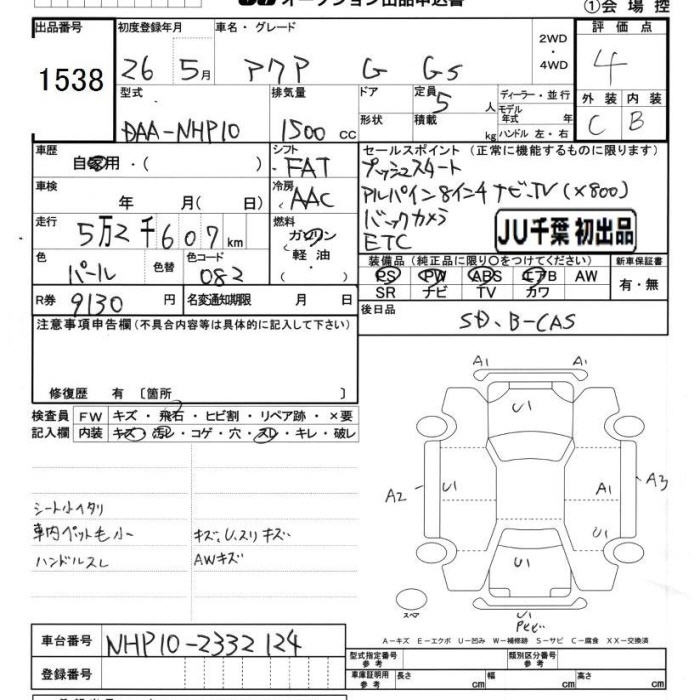 オークション出品申込書
①会場控
出品番号 初度登録年月 車名・グレード 2WD・4WD 評価点
1538 26 5月 アクア G Gs 4
型式 排気量 ドア 定員 5人 ディーラー・並行
モデル年式 年
外装 内装
C B
DAA-NHP10 1500cc 形状 積載 kg ハンドル 左・右
車歴 自家用・( )
シフト FAT
セールスポイント (正常に機能するものに限ります)
プッシュスタート
アルパイン8インチナビ.TV(×800)
バックカメラ
ETC
JU千葉 初出品
車検 年 月( 日)
冷房 AAC
走行 5万2千607km
燃料 ガソリン・軽油・( )
色 パール 色替 色コード 082
装備品 (純正品に限り○をつけてください) 新車保証書
PS PW ABS エアB AW 有・無
SR ナビ TV カワ
R券 9130円 名変通知期限 月 日
後日品 SD、B-CAS
注意事項申告欄(不具合内容等は具体的に記入して下さい)
修復歴 有 〔箇所 〕
検査員 FW キズ・飛石・ヒビ割・リペア跡・×要
記入欄 内装 キズ・汚レ・コゲ・穴・スレ・キレ・破レ
A1 A1
U1
A2 U1 A1 A3
U1
U1
シート小イタリ
車内ペット毛小 キズ、U、スリキズ
ハンドルスレ AWキズ
スペア
A-キズ E-エクボ U-凹み W-補修跡 S-サビ C-腐食 XX-交換済
車台番号 NHP10-2332124
登録番号
型式指定番号 参考 類別区分番号 参考
車庫証明用 参考 長さ cm 幅 cm 高さ cm